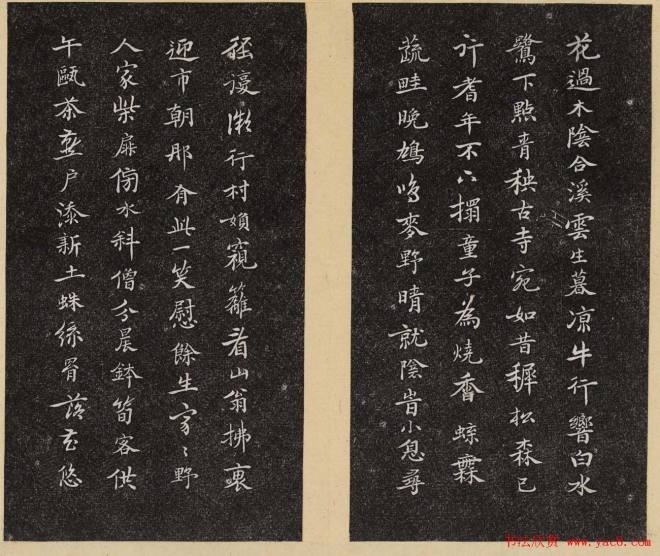 花過木陰合溪雲生暮凉牛行響白水
鷺下點青秧古寺宛如昔穉松森已
行耆年不下榻童子為燒香蝶舞
蔬畦晚鳩鳴麥野晴就陰旹小息尋
徑微行村婦窺籬看山翁拂
迎市朝那有此一笑慰餘生寂〻野
人家柴扉傍水斜僧分晨鉢筍客供
午甌茶戶添新土蛛絲罥落花悠
书法欣赏 www.yac8.com